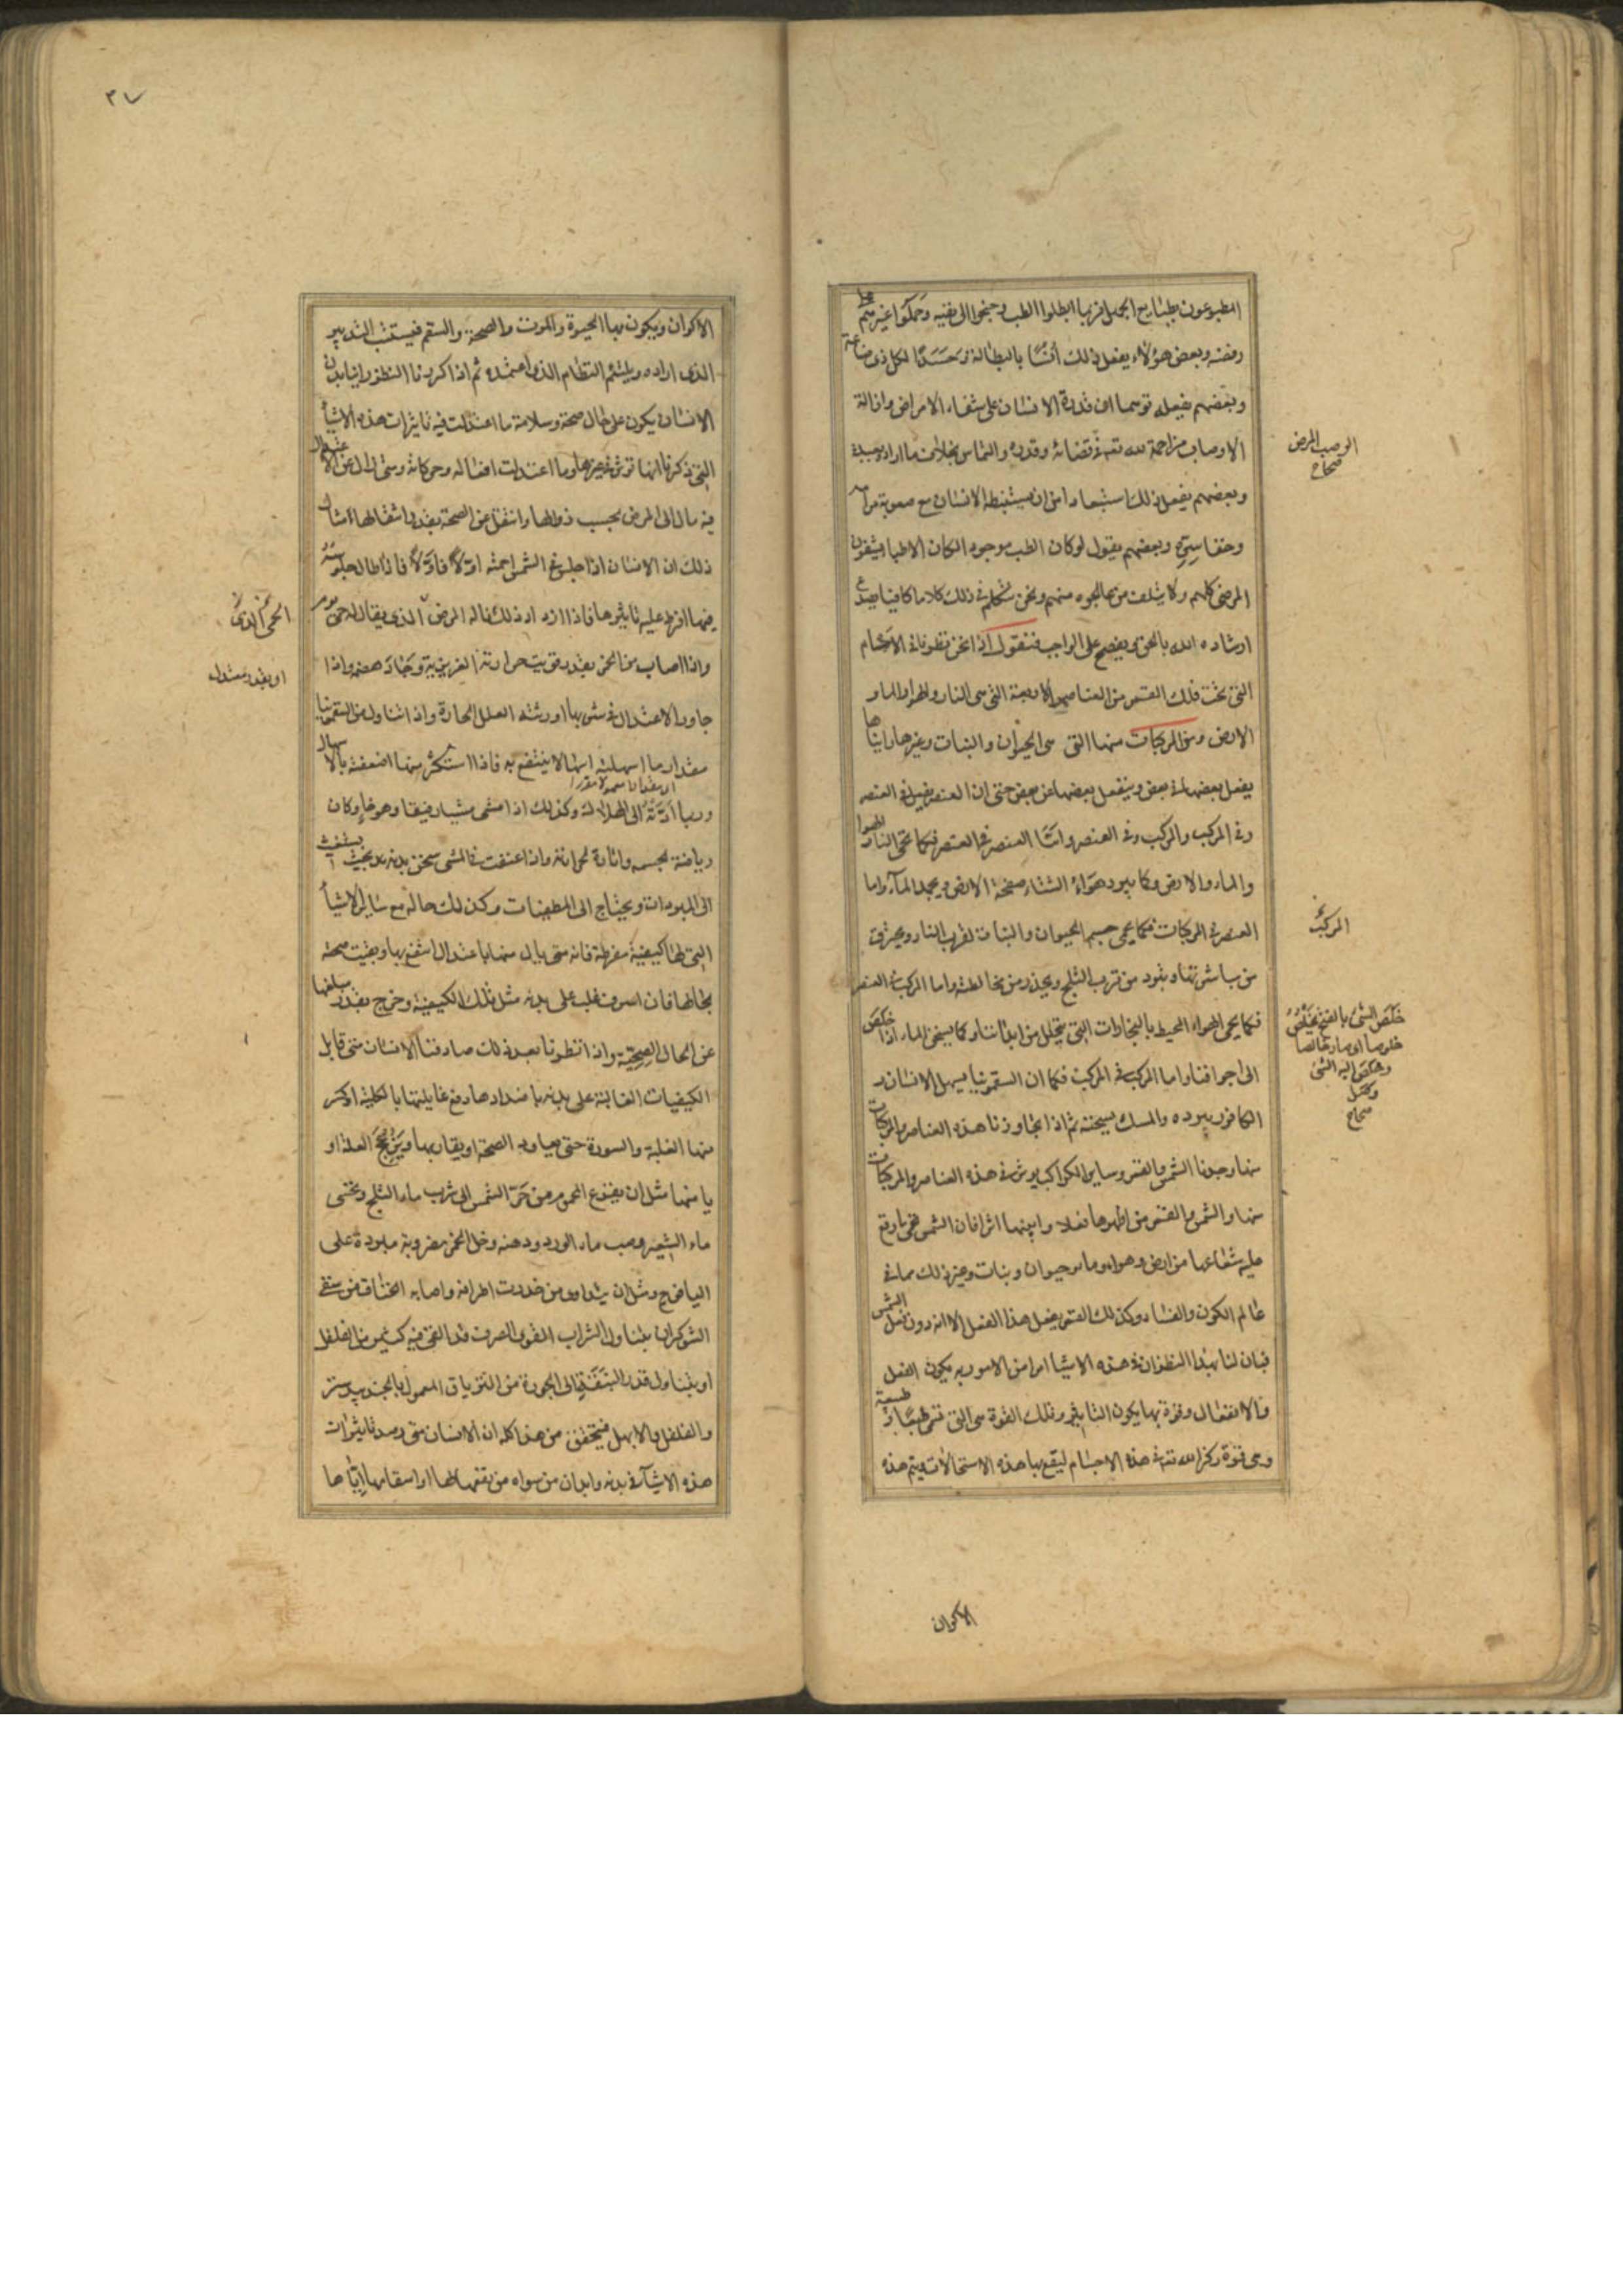 المطبوعون بطبايع الجهل فربما ابطلوا الطب وجنحوا الى نفيه وحملوا غيرهم على
رفضه وبعض هؤلاء يفعل ذلك أنسًا بالبطالة وحَسَدًا لكل ذى صناعة
وبعضهم يفعله توهما ان قدرة الانسان على شفاء الامراض وازالة
الاوصاب مزاحمة لله تعه فى قضائه وقدره والتماس بخلاف ما اراد بعبده
وبعضهم يفعل ذلك استبعادا من ان يستنبطه الانسان مع صعوبة مرامه
وخفا سِرّه وبعضهم يقول لو كان الطب موجودا لكان الاطبا يشفون
المرضى كلهم ولا يتلف من عالجوه منهم ونحن نتكلم فى ذلك كلاما كافيا
ارشاده الله بالحق ويفصح على الواجب فنقول اذا نحن نظرنا فى الاجسام
التى تحت فلك القمر من العناصر الاربعة التى هى النار والهوا والماء و
الارض ومن المركبات منها التى هى الحيوان والنبات وغيرها راينا
يفعل بعضها فى بعض وينفعل بعضها عن بعض حتى ان العنصر يفعل فى العنصر
وفى المركب والمركب فى العنصر وامّا العنصر فى العنصر فكما تحمى النار الهوا
والماء والارض وكما يبرد هَوَاءُ الشتاء صفحة الارض ويجمد الماء واما
العنصر فى المركبات فكما يحمى جسم الحيوان والنبات لقرب النار ويحترق
من مباشرتها ويبرد من قرب الثلج ويخدر من مخالطته واما المركب فى العنصر
فكما يحمى الهواء المحيط بالبخارات التى يتحلل من ابداننا وكما يسخن الماء اذا خلَصَ
الى اجوافنا واما المركب فى المركب فكما ان السقمونيا يسهل الانسان و
الكافور يبرده والمسك يسخنه ثم اذا تجاوزنا هذه العناصر والمركبات
منها وجدنا الشمس والقمر وساير الكواكب يوثر فى هذه العناصر والمركبات
منها والشمس والقمر من اظهرها فعلا وابينها اثرا فان الشمس تحمى ما وقع
عليه شعاعها من ارض وهواء وماء وحيوان ونبات وغير ذلك مما فى
عالم الكون والفساد وكذلك القمر يفعل هذا الفعل الا انه دون فعل الشمس
فبان لنا بهذا النظر ان فى هذه الاشيا امرا من الامور به يكون الفعل
والانفعال وقوة بها يكون التاثير وتلك القوة هى التى تسمى طبعًا و طبيعة
وهى قوة ركزها الله تعه فى هذه الاجسام ليقع بها هذه الاستحالات ويتم هذه
الوصب المرض
صحاح
المركبُ
خَلَصَ الشئُ بالفتح يَخْلُصُ
خلوصا اى صار خالصا
وخَلَصَ اليه الشئ
وصل
صحاح
الاكوان
٣٧
الاكوان ويكون بها الحيوة والموت والصحة والسقم فيستتب التدبير
الذى اراده ويلتئم النظام الذى اعتمده ثم اذا كررنا النظر راينا بدن
الانسان يكون على حال صحة وسلامة ما اعتدلت فيه تاثيرات هذه الاشيأ
التى ذكرنا انها توثر فى غيرها وما اعتدلت افعاله وحركاته ومتى زال عن الاعتدال
فيه مال الى المرض بحسب زوالها وانتقل عن الصحة بقدر انتقالها مثال
ذلك ان الانسان اذا جلس فى الشمس احمته اوّلًا فاوّلًا فاذا طال جلوسه
فيها افرط عليه تاثيرها فاذا ازداد ذلك ناله المرض الذى يقال له حمى يوم
واذا اصاب من الخمر بقدر قويت حرارته الغريزية وجَادَ هضمه واذا
جاوز الاعتدال فى شربها اورثته العلل الحارة واذا تناول من السقمونيا
مقدار ما اسهلته اسهالا ينتفع به فاذا استكثر منها اضعفته بالاسهال
وربما ادّته الى الهلاك وكذلك اذا مشى مشيا رفيقا وهو خاو كان
رياضة لجسمه واثارة لحرارته واذا اعنف فى المشى سخن بدنه بحيث يستغيث
الى المبردات ويحتاج الى المطفيات وكذلك حاله مع ساير الاشيأ
التى لها كيفية مفرطة فانه متى نال منها باعتدال انتفع بها وبقيت صحته
بحالها فان اسرف غلب على بدنه مثل تلك الكيفية وخرج بقدر مبلغها
عن الحال الصِحِيَّة واذا نظرنا بعد ذلك صادفنا الانسان متى قابل
الكيفيات الغالبة على بدنه باضدادها دفع غايلتها بالكلية او كسر
منها الغلبة والسورة حتى يعاود الصحة او يقاربها العلة او
يا منها مثل ان يفزع المحموم من حَرّ الشمس الى شرب ماء الثلج وتحسى
ماء الشعير وصب ماء الورد ودهنه وخل الخمر مضروبة مبردة على
اليافوخ ومثل ان يتداوى من خدرت اطرافه واصابه اختناق من سقى
الشوكران بتناول الشراب القوى الصرف قد القى فيه كثير من الفلفل
او بتناول قدر البندقة الى الجوزة من الترياق المعمول بالجندبيدستر
والفلفل والابهل فيتحقق من هذا كله ان الانسان متى رصد تاثيرات
هذه الاشيآء فى بدنه وابدان من سواه من نفعها لها او اسقامها ايّاها
الحمى الدىّ
او بقدر معتدل